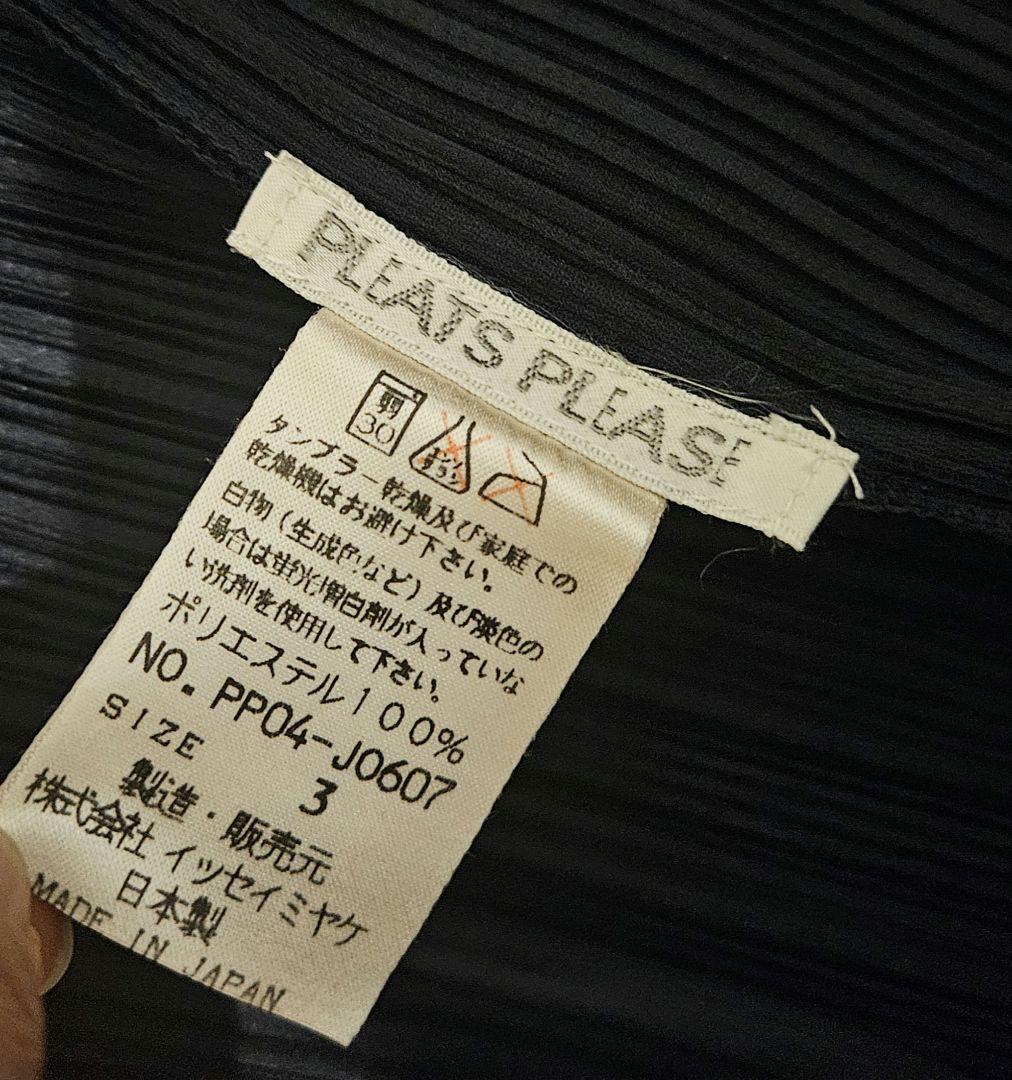 PLEATS PLEASE
弱
30
エンソ
サラシ
タンブラー乾燥及び家庭での
乾燥機はお避け下さい。
白物(生成色など)及び淡色の
場合は蛍光増白剤が入っていな
い洗剤を使用して下さい。
ポリエステル100%
NO. PP04-J0607
SIZE 3
製造・販売元
株式会社 イッセイミヤケ
日本製
MADE IN JAPAN